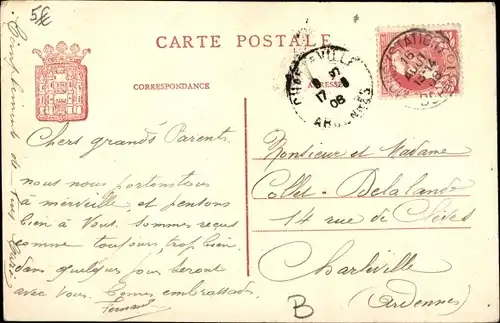 5€
CARTE POSTALE
CORRESPONDANCE
ADRESSE
CHARLEVILLE
17 - 9
08
ARDENNES
Chers grands Parents.
nous nous portons tous
à merveille, et pensons
bien à Vous. Sommes reçus
comme toujours, trop bien.
dans quelques jour seront
avec vous. Bonnes embrassades.
Fernand
Monsieur et Madame
Collet-Delalande
14 rue de Clèves
Charleville
(Ardennes)
B